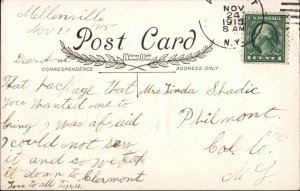 Mellenville
Nov 21 1915
NOV
24
1915
8 AM
N.Y.
Post Card
CORRESPONDENCE
ADDRESS ONLY
1 CENT 1
That package that
you wanted me to
bring I was afraid
I could not
it and so we
it down to Clermont
Love to all Lizzie
Mrs Linda Shadic
Philmont
Col. Co.
N.Y.